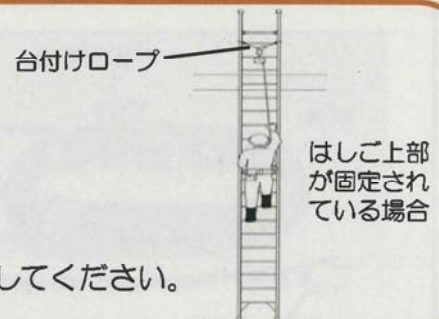 台付けロープ
はしご上部
が固定され
ている場合
してください。